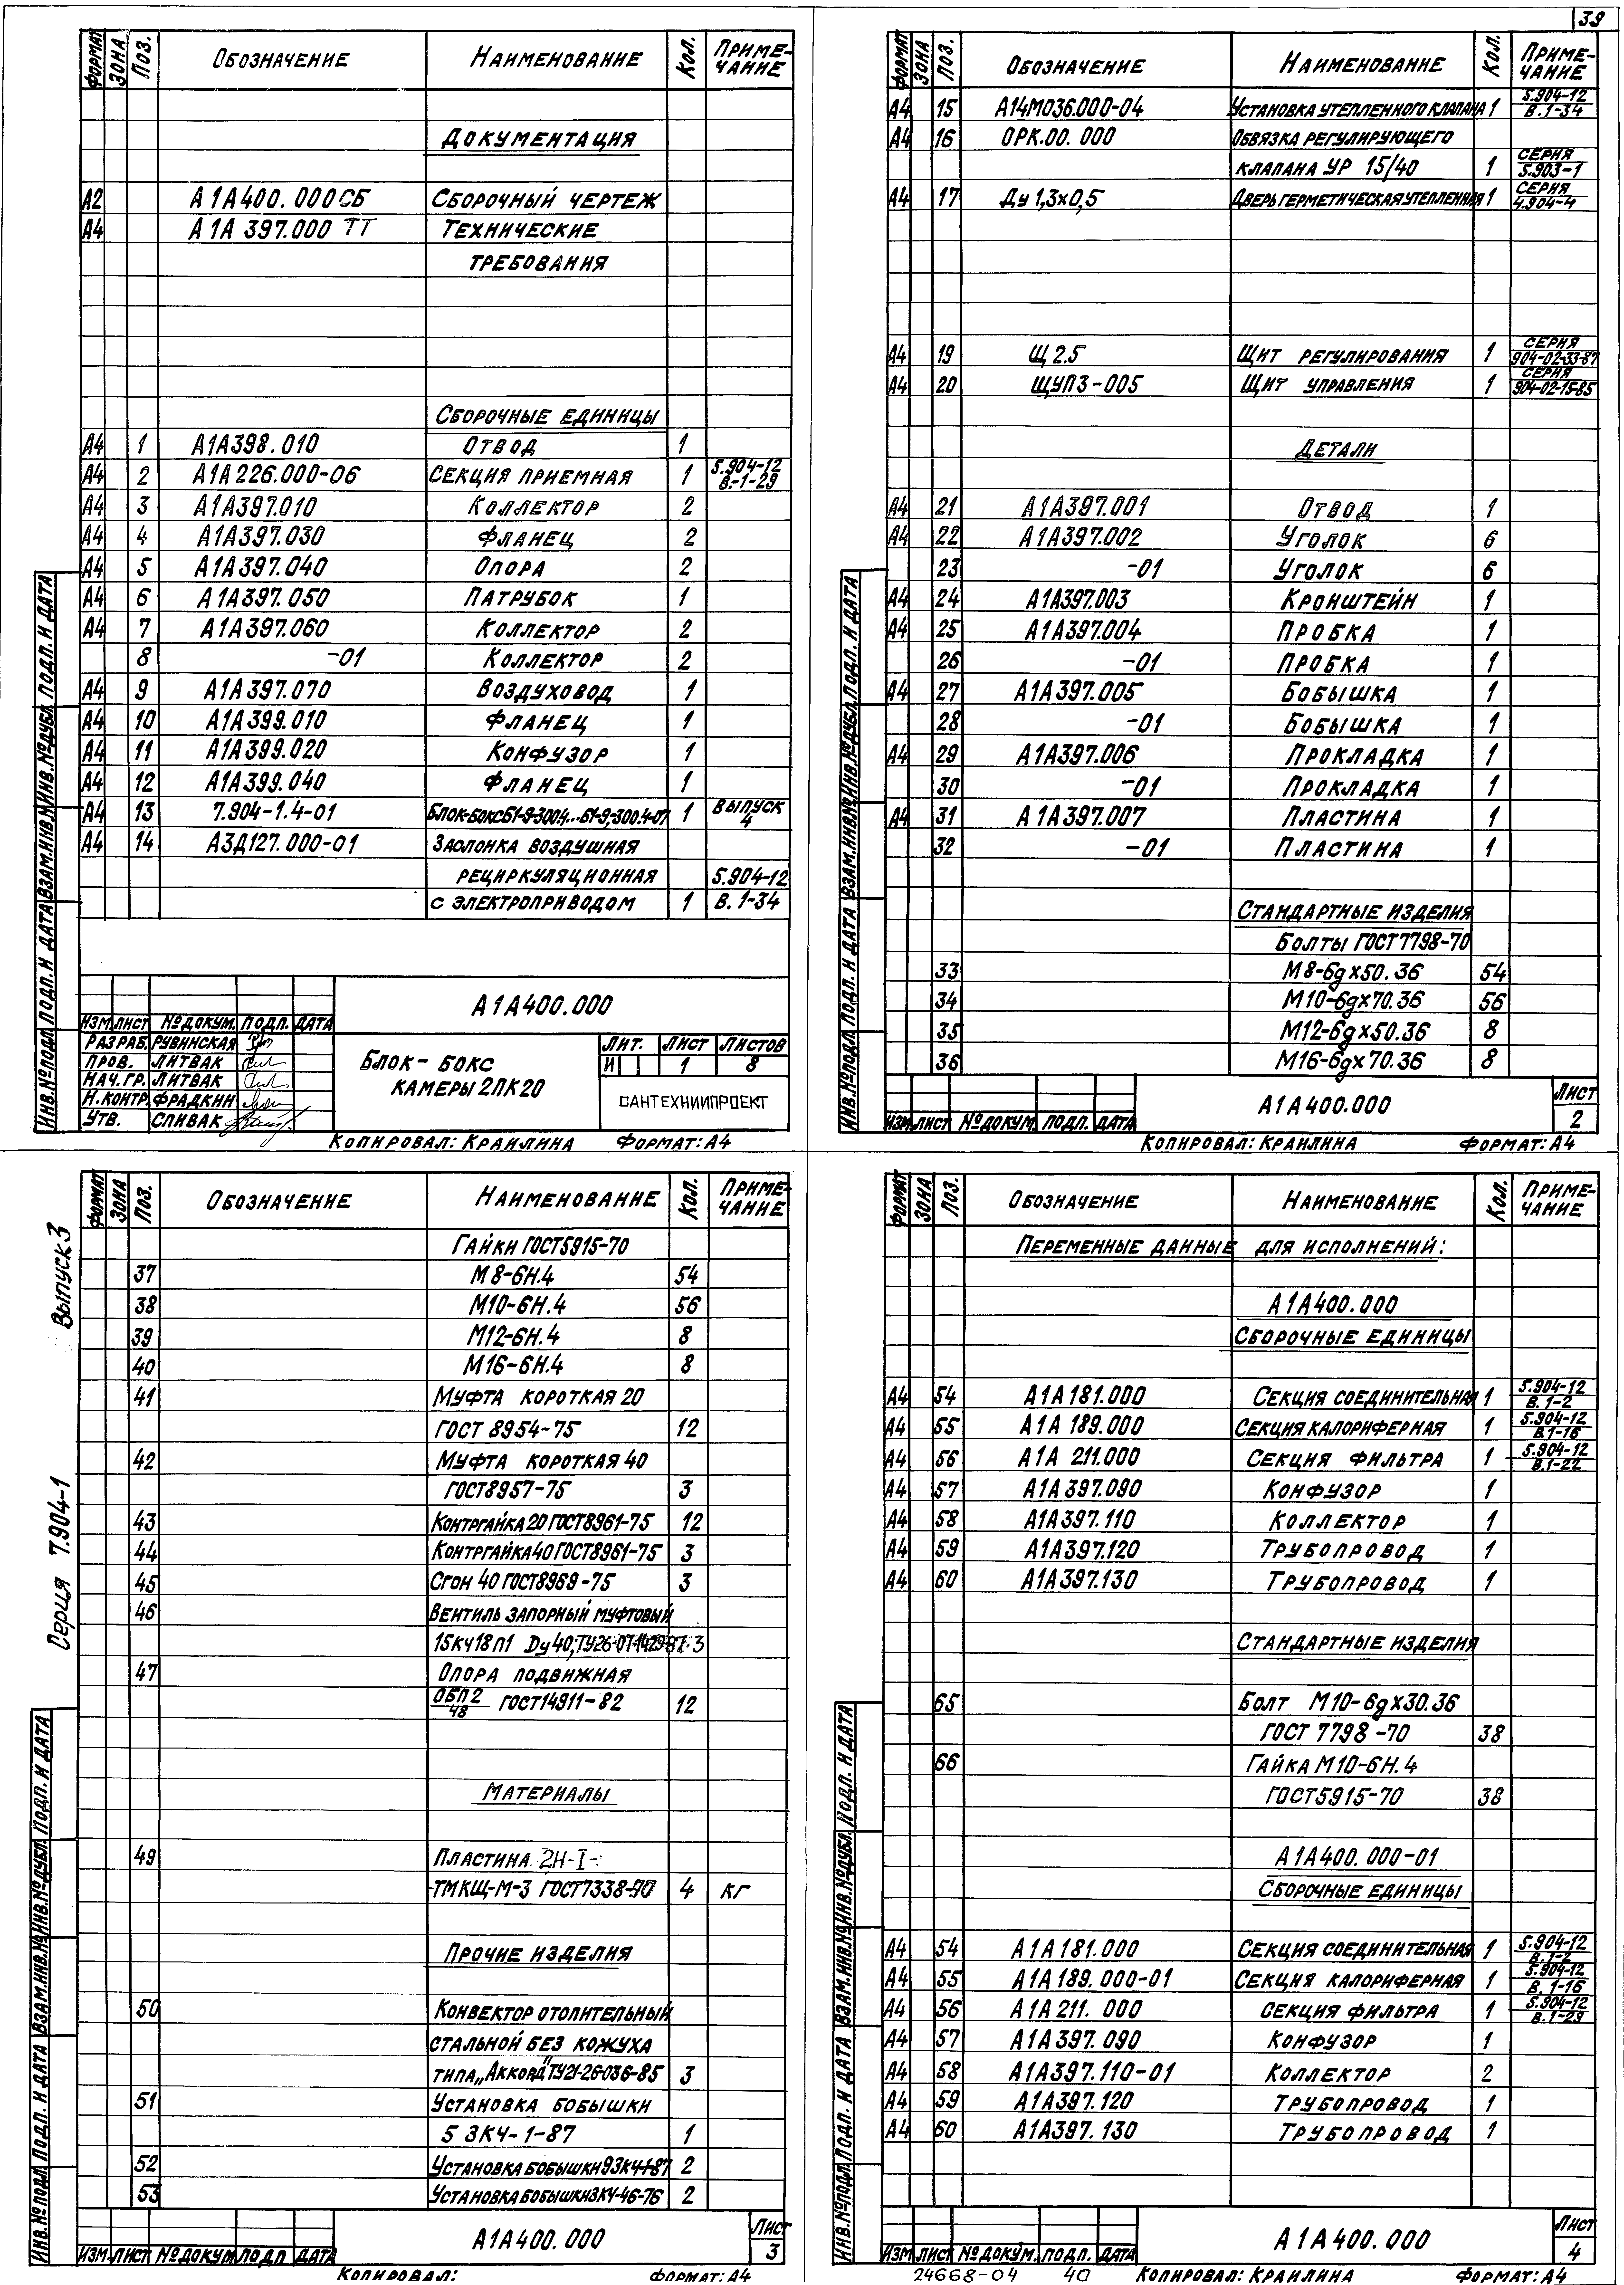 39
ФОРМАТ ЗОНА ПОЗ. ОБОЗНАЧЕНИЕ НАИМЕНОВАНИЕ КОЛ. ПРИМЕ-ЧАНИЕ
ДОКУМЕНТАЦИЯ
А2 А1А400.000СБ СБОРОЧНЫЙ ЧЕРТЕЖ
А4 А1А397.000 ТТ ТЕХНИЧЕСКИЕ
ТРЕБОВАНИЯ
СБОРОЧНЫЕ ЕДИНИЦЫ
А4 1 А1А398.010 ОТВОД 1
А4 2 А1А226.000-06 СЕКЦИЯ ПРИЕМНАЯ 1 5.904-12 В.-1-29
А4 3 А1А397.010 КОЛЛЕКТОР 2
А4 4 А1А397.030 ФЛАНЕЦ 2
А4 5 А1А397.040 ОПОРА 2
А4 6 А1А397.050 ПАТРУБОК 1
А4 7 А1А397.060 КОЛЛЕКТОР 2
8 -01 КОЛЛЕКТОР 2
А4 9 А1А397.070 ВОЗДУХОВОД 1
А4 10 А1А399.010 ФЛАНЕЦ 1
А4 11 А1А399.020 КОНФУЗОР 1
А4 12 А1А399.040 ФЛАНЕЦ 1
А4 13 7.904-1.4-01 БЛОК-БОКС Б1-9-300.4...Б1-9,-300.4-07 1 ВЫПУСК 4
А4 14 А3Д127.000-01 ЗАСЛОНКА ВОЗДУШНАЯ
РЕЦИРКУЛЯЦИОННАЯ 5.904-12
С ЭЛЕКТРОПРИВОДОМ 1 В. 1-34
А1А400.000
ИЗМ. ЛИСТ № ДОКУМ. ПОДП. ДАТА
РАЗРАБ. РУВИНСКАЯ
ПРОВ. ЛИТВАК
НАЧ.ГР. ЛИТВАК
Н.КОНТР. ФРАДКИН
УТВ. СПИВАК
БЛОК-БОКС
КАМЕРЫ 2ПК20
ЛИТ. ЛИСТ ЛИСТОВ
И 1 8
САНТЕХНИИПРОЕКТ
КОПИРОВАЛ: КРАИЛИНА ФОРМАТ: А4
ИНВ.№ПОДЛ. ПОДП. И ДАТА ВЗАМ.ИНВ.№ ИНВ.№ДУБЛ. ПОДП. И ДАТА
ФОРМАТ ЗОНА ПОЗ. ОБОЗНАЧЕНИЕ НАИМЕНОВАНИЕ КОЛ. ПРИМЕ-ЧАНИЕ
А4 15 А14М036.000-04 УСТАНОВКА УТЕПЛЕННОГО КЛАПАНА 1 5.904-12 В.1-34
А4 16 ОРК.00.000 ОБВЯЗКА РЕГУЛИРУЮЩЕГО
КЛАПАНА УР 15/40 1 СЕРИЯ 5.903-1
А4 17 Ду 1,3х0,5 ДВЕРЬ ГЕРМЕТИЧЕСКАЯ УТЕПЛЕННАЯ 1 СЕРИЯ 4.904-4
А4 19 Щ 2.5 ЩИТ РЕГУЛИРОВАНИЯ 1 СЕРИЯ 904-02-33-87
А4 20 ЩУПЗ-005 ЩИТ УПРАВЛЕНИЯ 1 СЕРИЯ 904-02-15-85
ДЕТАЛИ
А4 21 А1А397.001 ОТВОД 1
А4 22 А1А397.002 УГОЛОК 6
23 -01 УГОЛОК 6
А4 24 А1А397.003 КРОНШТЕЙН 1
А4 25 А1А397.004 ПРОБКА 1
26 -01 ПРОБКА 1
А4 27 А1А397.005 БОБЫШКА 1
28 -01 БОБЫШКА 1
А4 29 А1А397.006 ПРОКЛАДКА 1
30 -01 ПРОКЛАДКА 1
А4 31 А1А397.007 ПЛАСТИНА 1
32 -01 ПЛАСТИНА 1
СТАНДАРТНЫЕ ИЗДЕЛИЯ
БОЛТЫ ГОСТ7798-70
33 М8-6gх50.36 54
34 М10-6gх70.36 56
35 М12-6gх50.36 8
36 М16-6gх70.36 8
ИЗМ. ЛИСТ № ДОКУМ. ПОДП. ДАТА
А1А400.000
ЛИСТ 2
КОПИРОВАЛ: КРАИЛИНА ФОРМАТ: А4
ИНВ.№ПОДЛ. ПОДП. И ДАТА ВЗАМ.ИНВ.№ ИНВ.№ДУБЛ. ПОДП. И ДАТА
Серия 7.904-1 Выпуск 3
ФОРМАТ ЗОНА ПОЗ. ОБОЗНАЧЕНИЕ НАИМЕНОВАНИЕ КОЛ. ПРИМЕ-ЧАНИЕ
ГАЙКИ ГОСТ5915-70
37 М8-6Н.4 54
38 М10-6Н.4 56
39 М12-6Н.4 8
40 М16-6Н.4 8
41 МУФТА КОРОТКАЯ 20
ГОСТ 8954-75 12
42 МУФТА КОРОТКАЯ 40
ГОСТ8957-75 3
43 КОНТРГАЙКА 20 ГОСТ8961-75 12
44 КОНТРГАЙКА 40 ГОСТ8961-75 3
45 СГОН 40 ГОСТ8969-75 3
46 ВЕНТИЛЬ ЗАПОРНЫЙ МУФТОВЫЙ
15кч18п1 Dу40, 3
47 ОПОРА ПОДВИЖНАЯ
ОБП2/48 ГОСТ14911-82 12
МАТЕРИАЛЫ
49 ПЛАСТИНА 2Н-I-
ТМКЩ-М-3 ГОСТ7338-90 4 КГ
ПРОЧИЕ ИЗДЕЛИЯ
50 КОНВЕКТОР ОТОПИТЕЛЬНЫЙ
СТАЛЬНОЙ БЕЗ КОЖУХА
ТИПА „АККОРД" ТУ21-26-036-85 3
51 УСТАНОВКА БОБЫШКИ
5 ЗКЧ-1-87 1
52 УСТАНОВКА БОБЫШКИ 9ЗКЧ-1-87 2
53 УСТАНОВКА БОБЫШКИ ЗКЧ-46-76 2
ИЗМ. ЛИСТ № ДОКУМ. ПОДП. ДАТА
А1А400.000
ЛИСТ 3
КОПИРОВАЛ: ФОРМАТ: А4
ИНВ.№ПОДЛ. ПОДП. И ДАТА ВЗАМ.ИНВ.№ ИНВ.№ДУБЛ. ПОДП. И ДАТА
ФОРМАТ ЗОНА ПОЗ. ОБОЗНАЧЕНИЕ НАИМЕНОВАНИЕ КОЛ. ПРИМЕ-ЧАНИЕ
ПЕРЕМЕННЫЕ ДАННЫЕ ДЛЯ ИСПОЛНЕНИЙ:
А1А400.000
СБОРОЧНЫЕ ЕДИНИЦЫ
А4 54 А1А181.000 СЕКЦИЯ СОЕДИНИТЕЛЬНАЯ 1 5.904-12 В.1-2
А4 55 А1А189.000 СЕКЦИЯ КАЛОРИФЕРНАЯ 1 5.904-12 В.1-16
А4 56 А1А 211.000 СЕКЦИЯ ФИЛЬТРА 1 5.904-12 В.1-22
А4 57 А1А397.090 КОНФУЗОР 1
А4 58 А1А397.110 КОЛЛЕКТОР 1
А4 59 А1А397.120 ТРУБОПРОВОД 1
А4 60 А1А397.130 ТРУБОПРОВОД 1
СТАНДАРТНЫЕ ИЗДЕЛИЯ
65 БОЛТ М10-6gх30.36
ГОСТ 7798-70 38
66 ГАЙКА М10-6Н.4
ГОСТ5915-70 38
А1А400.000-01
СБОРОЧНЫЕ ЕДИНИЦЫ
А4 54 А1А181.000 СЕКЦИЯ СОЕДИНИТЕЛЬНАЯ 1 5.904-12 В.1-2
А4 55 А1А189.000-01 СЕКЦИЯ КАЛОРИФЕРНАЯ 1 5.904-12 В.1-16
А4 56 А1А211.000 СЕКЦИЯ ФИЛЬТРА 1 5.904-12 В.1-29
А4 57 А1А397.090 КОНФУЗОР 1
А4 58 А1А397.110-01 КОЛЛЕКТОР 2
А4 59 А1А397.120 ТРУБОПРОВОД 1
А4 60 А1А397.130 ТРУБОПРОВОД 1
ИЗМ. ЛИСТ № ДОКУМ. ПОДП. ДАТА
А1А400.000
ЛИСТ 4
24668-04 40 КОПИРОВАЛ: КРАИЛИНА ФОРМАТ: А4
ИНВ.№ПОДЛ. ПОДП. И ДАТА ВЗАМ.ИНВ.№ ИНВ.№ДУБЛ. ПОДП. И ДАТА